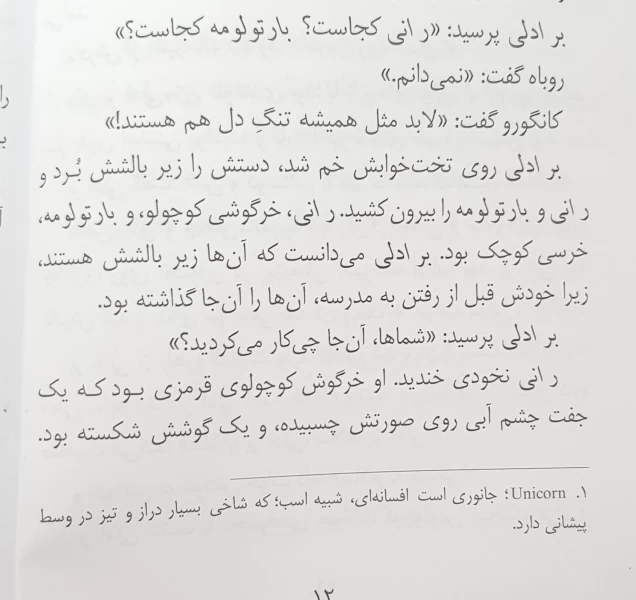 بر ادلی پرسید: «ر انی کجاست؟ بارتولومه کجاست؟»
روباه گفت: «نمی‌دانم.»
کانگورو گفت: «لابد مثل همیشه تنگِ دل هم هستند!»
بر ادلی روی تخت‌خوابش خم شد، دستش را زیر بالشش بُرد و
ر انی و بارتولومه را بیرون کشید. ر انی، خرگوشی کوچولو، و بارتولومه،
خرسی کوچک بود. بر ادلی می‌دانست که آن‌ها زیر بالشش هستند،
زیرا خودش قبل از رفتن به مدرسه، آن‌ها را آن‌جا گذاشته بود.
بر ادلی پرسید: «شماها، آن‌جا چی‌کار می‌کردید؟»
ر انی نخودی خندید. او خرگوش کوچولوی قرمزی بود که یک
جفت چشم آبی روی صورتش چسبیده، و یک گوشش شکسته بود.
۱. Unicorn؛ جانوری است افسانه‌ای، شبیه اسب؛ که شاخی بسیار دراز و تیز در وسط
پیشانی دارد.
۱۲